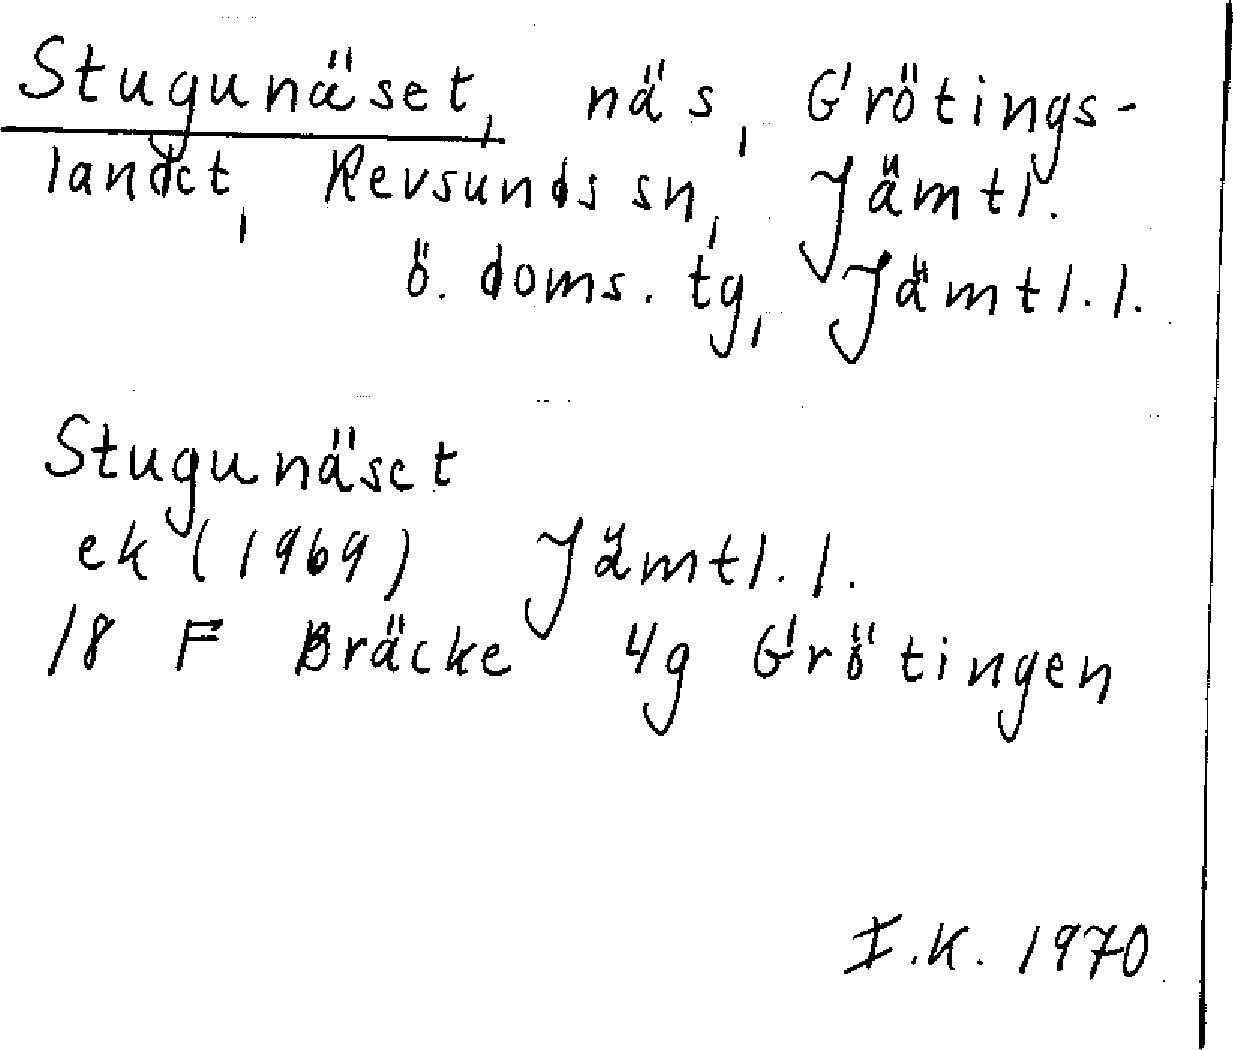 Stugunäset, näs, Grötings-
landet, Revsunds sn, Jämtl.
ö. doms. tg, Jämtl. l.
Stugunäset
ek (1969) Jämtl. l.
18 F Bräcke 4g Grötingen
I.K. 1970